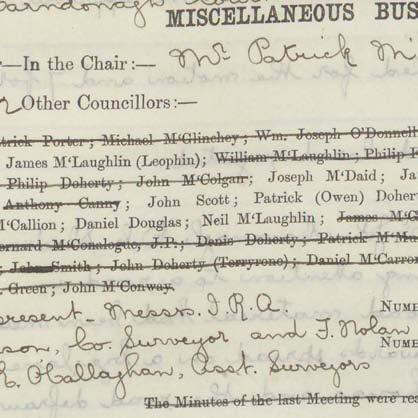 MISCELLANEOUS BUS
—In the Chair:— Mr. Patrick M
Other Councillors:—
trick Porter; Michael M'Glinchey; Wm. Joseph O'Donnell
James M'Laughlin (Leophin); William M'Laughlin; Philip
Philip Doherty; John M'Colgan; Joseph M'Daid; Ja
Anthony Canny; John Scott; Patrick (Owen) Doher
M'Callion; Daniel Douglas; Neil M'Laughlin; James M'G
ernard M'Conalogue, J.P.; Denis Doherty; Patrick M'Ma
; John Smith; John Doherty (Terryrone); Daniel M'Carron
. Green; John M'Conway.
present - Messrs. J. R. A. NUME
son, Co. Surveyor and J. Nolan NUME
O'Callaghan, Asst. Surveyors
The Minutes of the last Meeting were rea